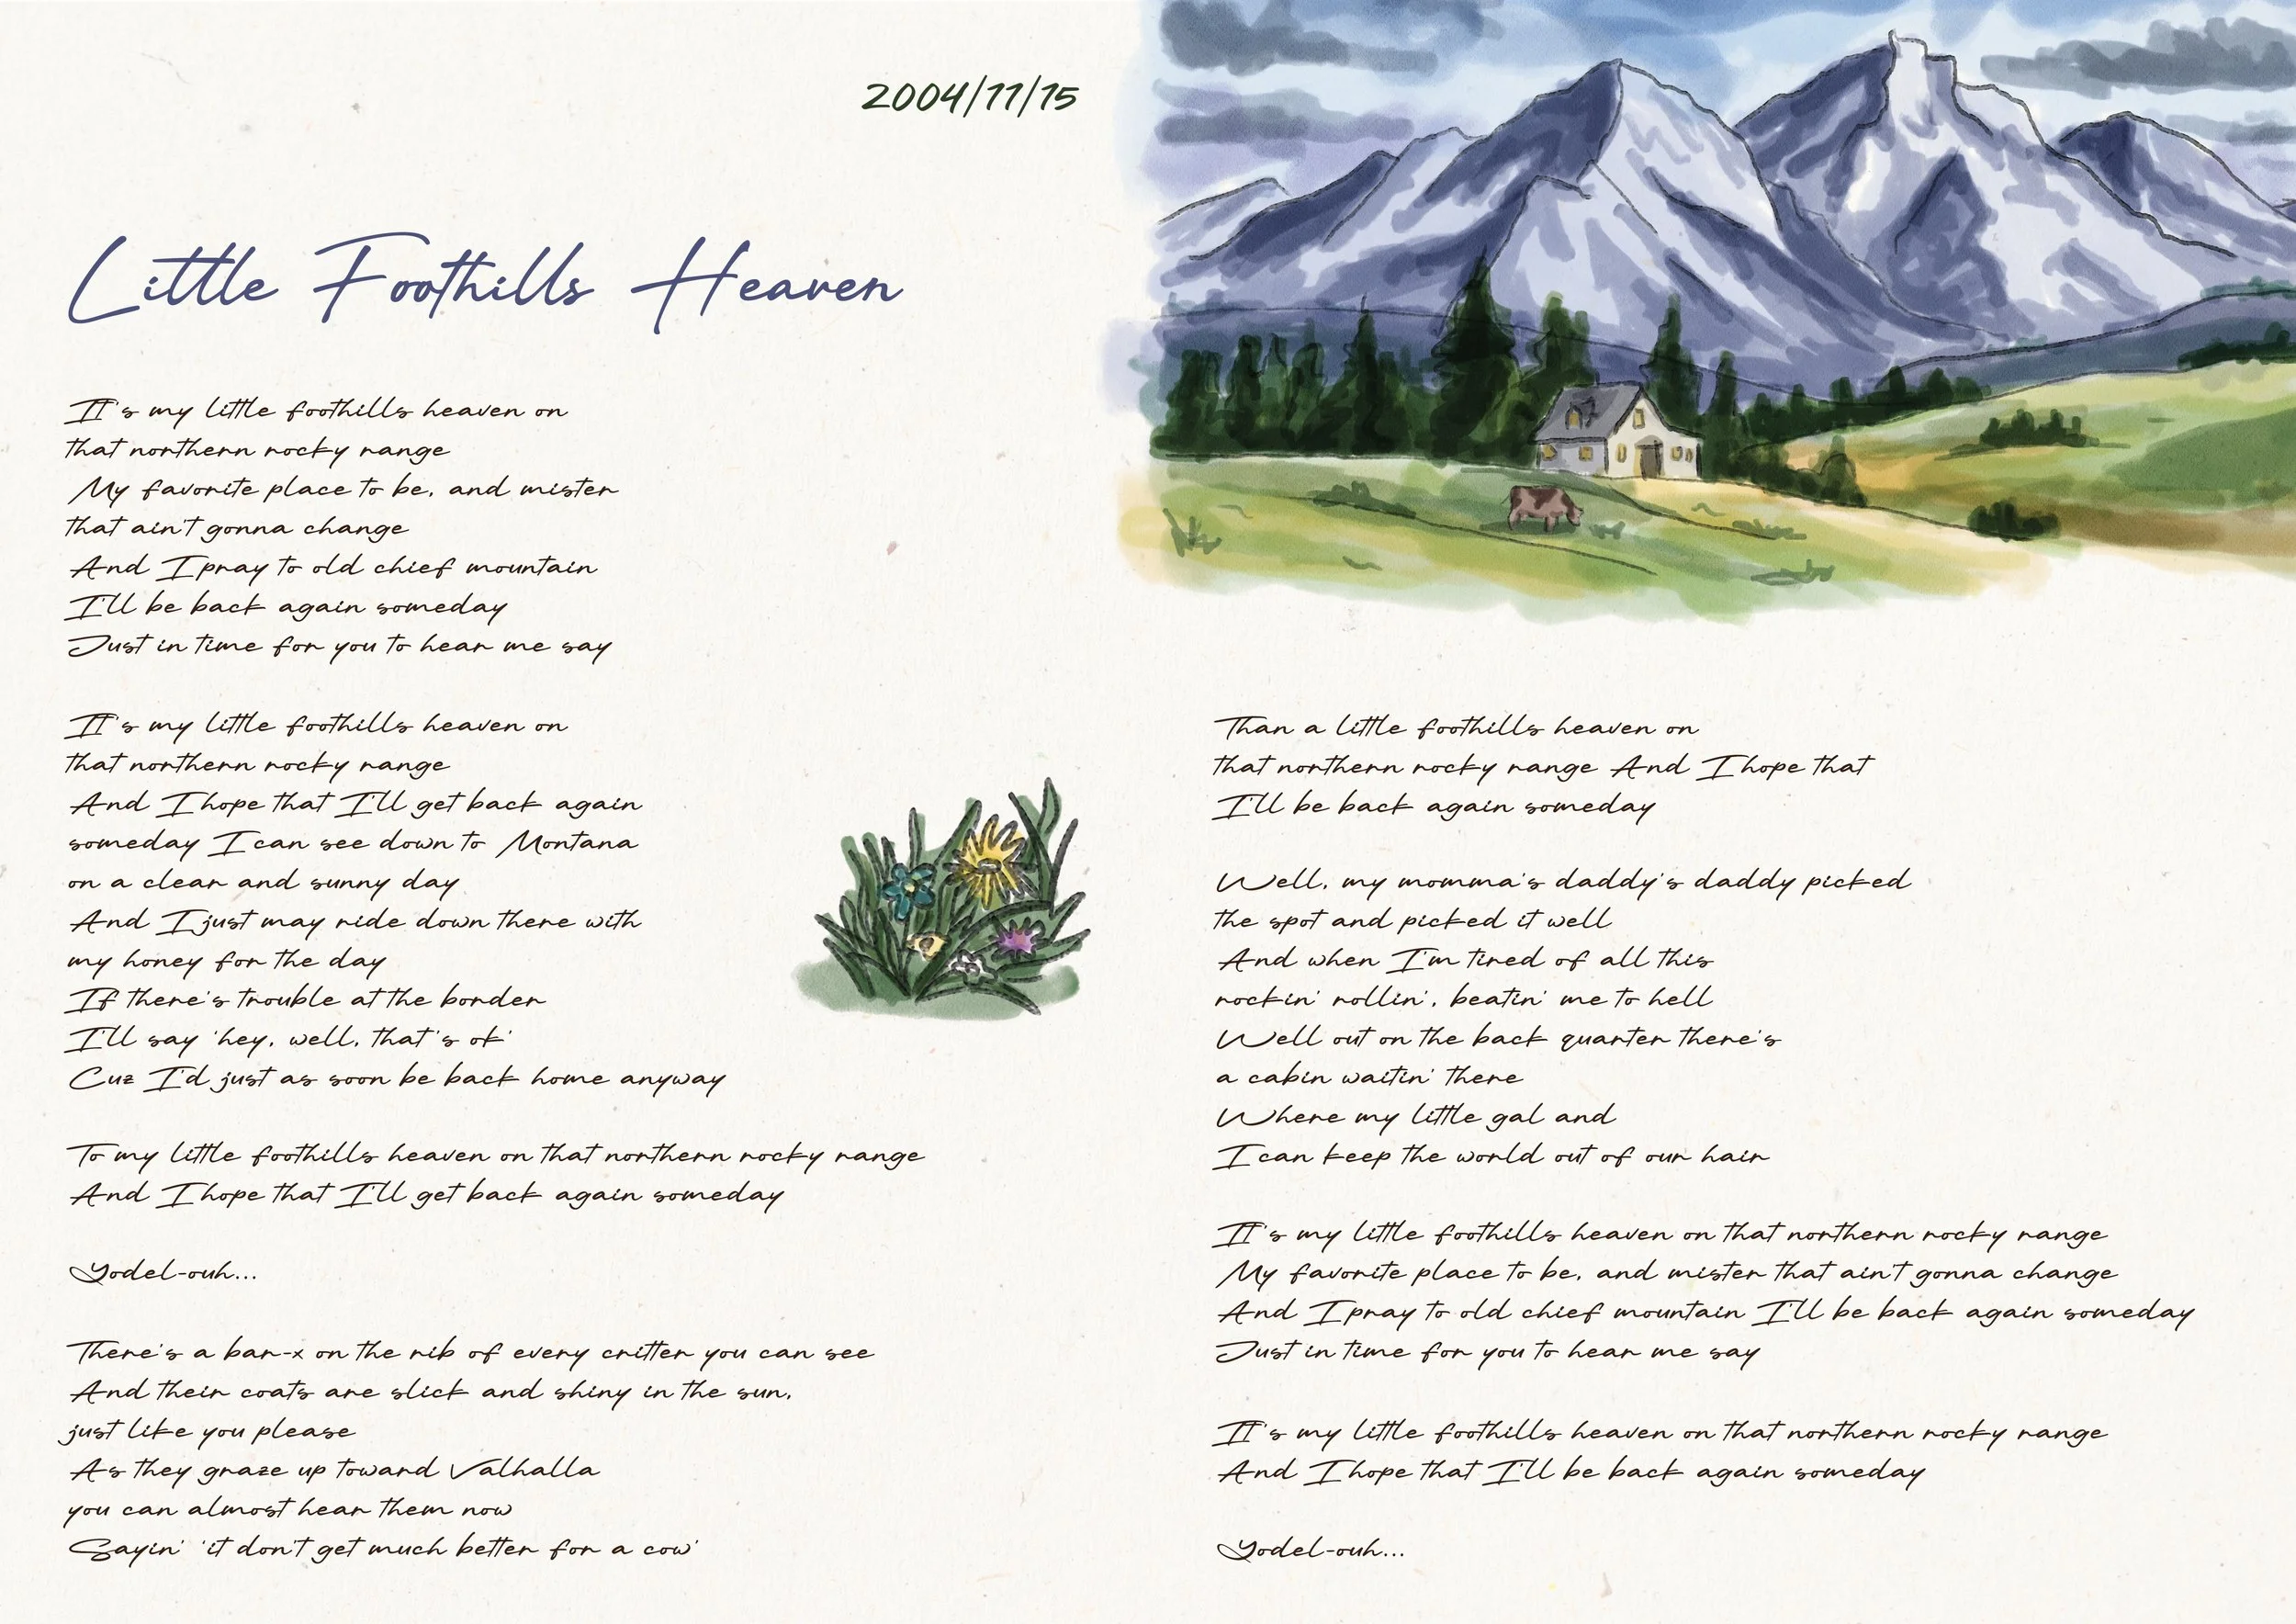 2004/11/15
Little Foothills Heaven
It's my little foothills heaven on
that northern rocky range
My favorite place to be, and mister
that ain't gonna change
And I pray to old chief mountain
I'll be back again someday
Just in time for you to hear me say
It's my little foothills heaven on
that northern rocky range
And I hope that I'll get back again
someday I can see down to Montana
on a clear and sunny day
And I just may ride down there with
my honey for the day
If there's trouble at the border
I'll say 'hey, well, that's ok'
Cuz I'd just as soon be back home anyway
To my little foothills heaven on that northern rocky range
And I hope that I'll get back again someday
Yodel-ouh...
There's a bar-x on the rib of every critter you can see
And their coats are slick and shiny in the sun,
just like you please
As they graze up toward Valhalla
you can almost hear them now
Sayin' 'it don't get much better for a cow'
Than a little foothills heaven on
that northern rocky range And I hope that
I'll be back again someday
Well, my momma's daddy's daddy picked
the spot and picked it well
And when I'm tired of all this
rockin' rollin', beatin' me to hell
Well out on the back quarter there's
a cabin waitin' there
Where my little gal and
I can keep the world out of our hair
It's my little foothills heaven on that northern rocky range
My favorite place to be, and mister that ain't gonna change
And I pray to old chief mountain I'll be back again someday
Just in time for you to hear me say
It's my little foothills heaven on that northern rocky range
And I hope that I'll be back again someday
Yodel-ouh...